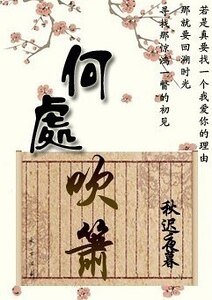 若是真要找一个我爱你的理由
那就要回溯时光
寻找那惊鸿一瞥的初见
何處
吹簫
秋迟夜暮